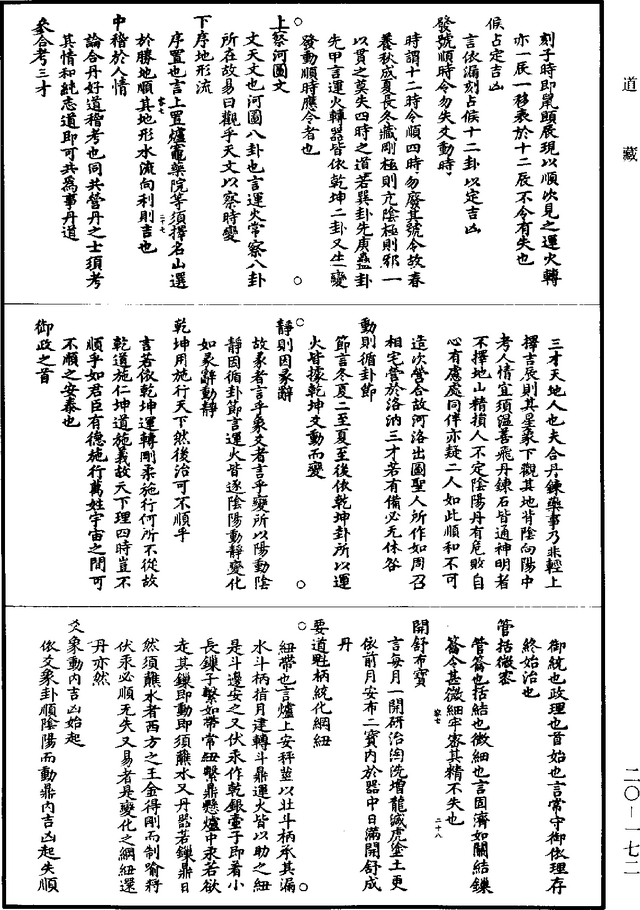 道藏
刻子時即鼠頭辰現以順次見之運火轉
亦一辰一移表於十二辰不令有失也
候占定吉凶
言依漏刻占候十二卦以定吉凶
發號順時令勿失爻動時
時謂十二時令順四時勿廢其號令故春
養秋成夏長冬藏剛極則亢陰極則邪一
以貫之莫失四時之道若巽卦先庚蠱卦
先甲言運火轉器皆依乾坤二卦又生變
發動順時應令者也
上察河圖文
文天文也河圖八卦也言運火常察八卦
所在故易曰觀乎天文以察時變
下序地形流
序置也言上置爐竈藥院等須擇名山選
於勝地順其地形水流向利則吉也
中稽於人情
論合丹好道稽考也同共營丹之士須考
其情和純志道即可共為事丹道
參合考三才
三才天地人也夫合丹鍊藥事乃非輕上
擇吉辰則其星象下觀其地背陰向陽中
考人情宜須溫善飛丹鍊石皆通神明者
不擇地山精損人不定陰陽丹有危敗自
心有慮處同伴亦疑二人如此順和不可
造次營合故河洛出圖聖人所作如周召
相宅營於洛汭三才若有備必无休咎
動則循卦節
節言冬夏二至夏至後依乾坤卦所以運
火皆據乾坤爻動而變
靜則因彖辭
故彖者言乎象爻者言乎變所以陽動陰
靜因循卦節言運火皆逐陰陽動靜變化
如彖辭動靜
乾坤用施行天下然後治可不順乎
言若依乾坤運轉剛柔施行何所不從故
乾道施仁坤道施義故天下理四時豈不
順乎如君臣有德施行萬姓宇宙之間可
不順之安泰也
御政之首
御統也政理也首始也言常守御依理存
終始治也
管括微密
管籥也括結也微細也言固濟如關結鏁
籥令甚微細牢密其精不失也
開舒布寶
言每月一開研治淘洗增龍減虎塗土更
依前月安布二寶內於器中日滿開舒成
丹
要道魁柄統化綱紐
紐帶也言爐上安秤莖以壯斗柄承其漏
水斗柄指月建轉斗鼎運火皆以助之紐
是斗邊安之又伏汞作乾銀臺子即看小
長鏁子繫如帶常紐繫鼎懸爐中汞若欲
走其鏁即動即須蘸水又丹器若鏁鼎日
然須蘸水者西方之王金得剛而制喻將
伏汞必順无失又易者是變化之綱紐還
丹亦然
爻象動內吉凶始起
依爻象卦順陰陽而動鼎內吉凶起失順
家七
二十七
家七
二十八
二〇—一七二